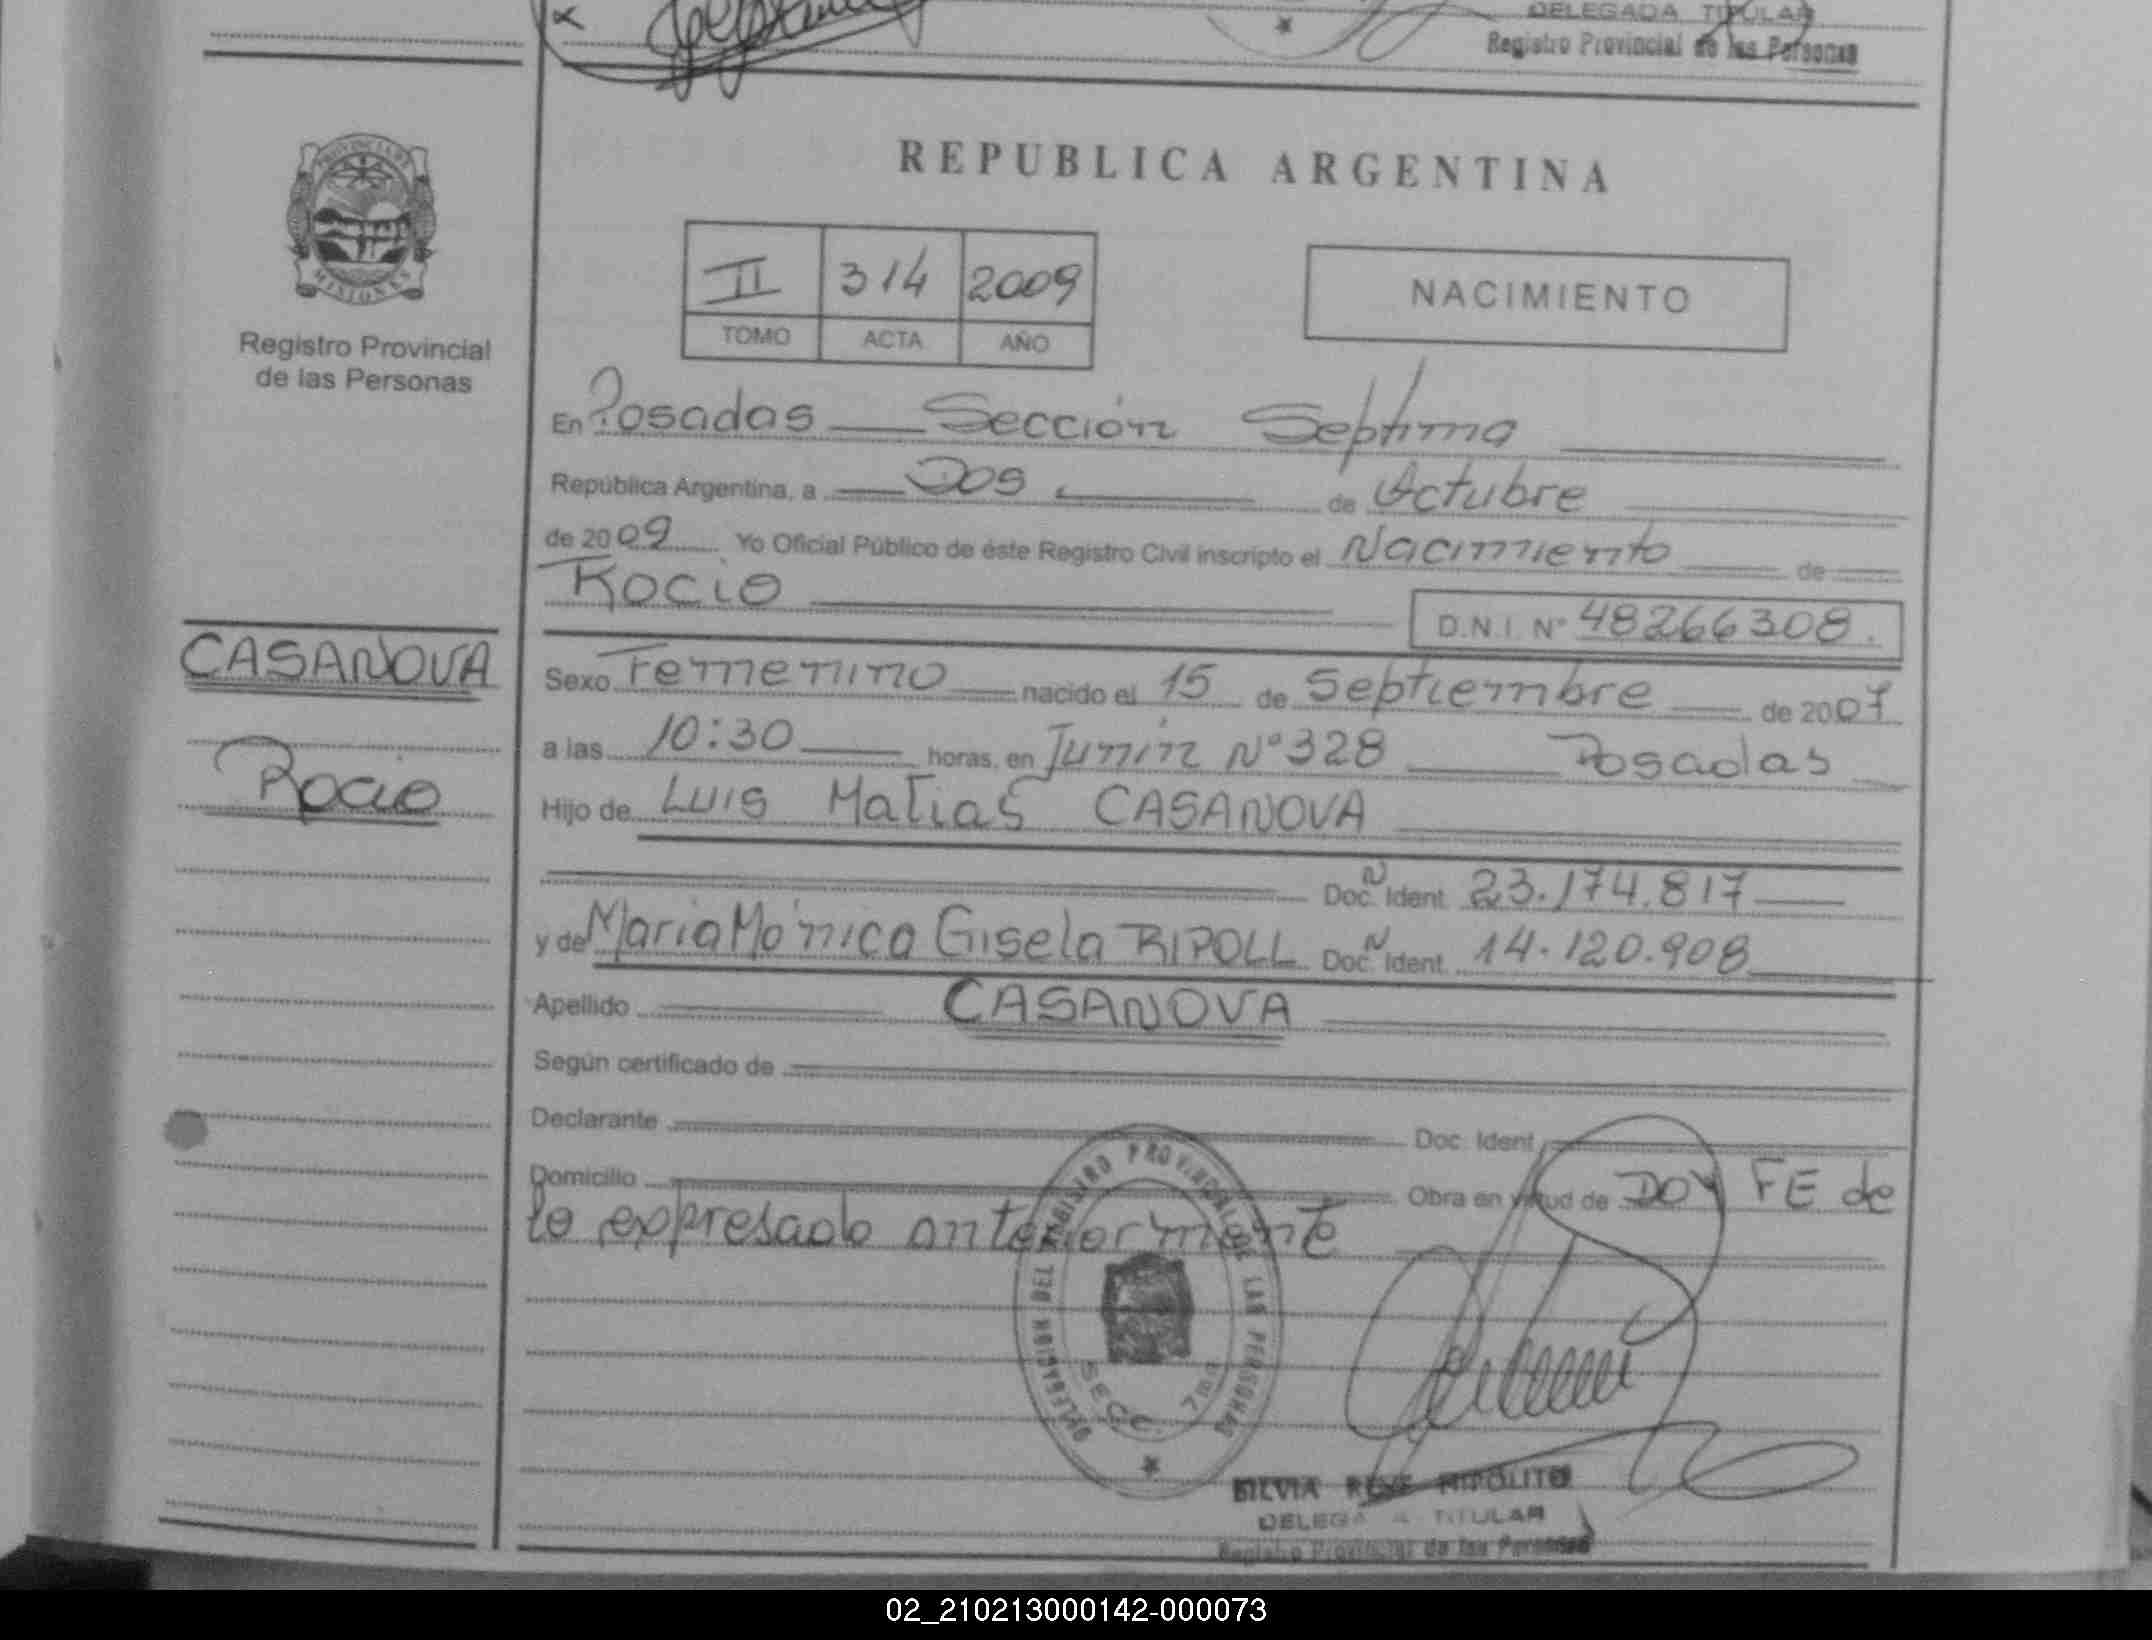 DELEGADA TITULAR
Registro Provincial de las Personas
PROVINCIA DE
MISIONES
Registro Provincial
de las Personas
CASANOVA
Rocio
REPUBLICA ARGENTINA
II 314 2009
TOMO ACTA AÑO
NACIMIENTO
En Posadas Sección Septima
República Argentina, a Dos de Octubre
de 2009 Yo Oficial Público de éste Registro Civil inscripto el Nacimiento de
Rocio D.N.I. N° 48266308.
Sexo Femenino nacido el 15 de Septiembre de 2007
a las 10:30 horas, en Junín N° 328 Posadas
Hijo de Luis Matias CASANOVA
Doc. N Ident. 23.174.817
y de Maria Mónica Gisela RIPOLL Doc. N Ident. 14.120.908
Apellido CASANOVA
Según certificado de
Declarante Doc. Ident.
Domicilio Obra en virtud de DOY FE de
lo expresado anteriormente
DELEGACION DEL REGISTRO PROVINCIAL DE LAS PERSONAS
SECC. 7ma
SILVIA RENE HIPOLITO
DELEGADA TITULAR
Registro Provincial de las Personas
02_210213000142-000073